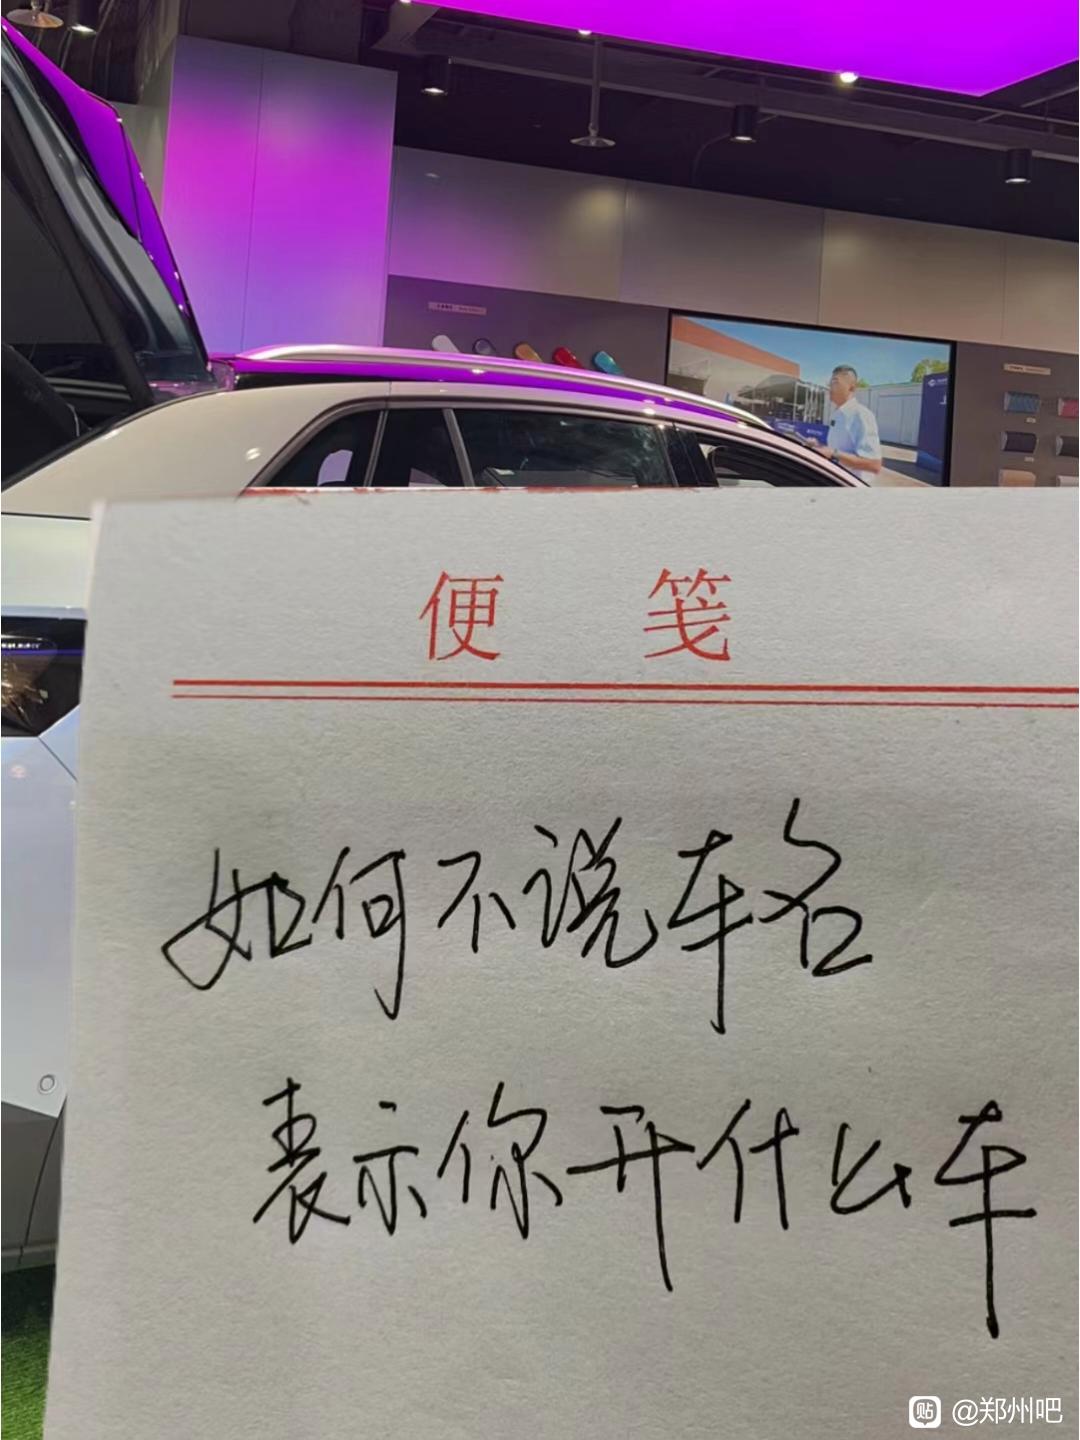 便笺
如何不说车名
表示你开什么车
贴 @郑州吧